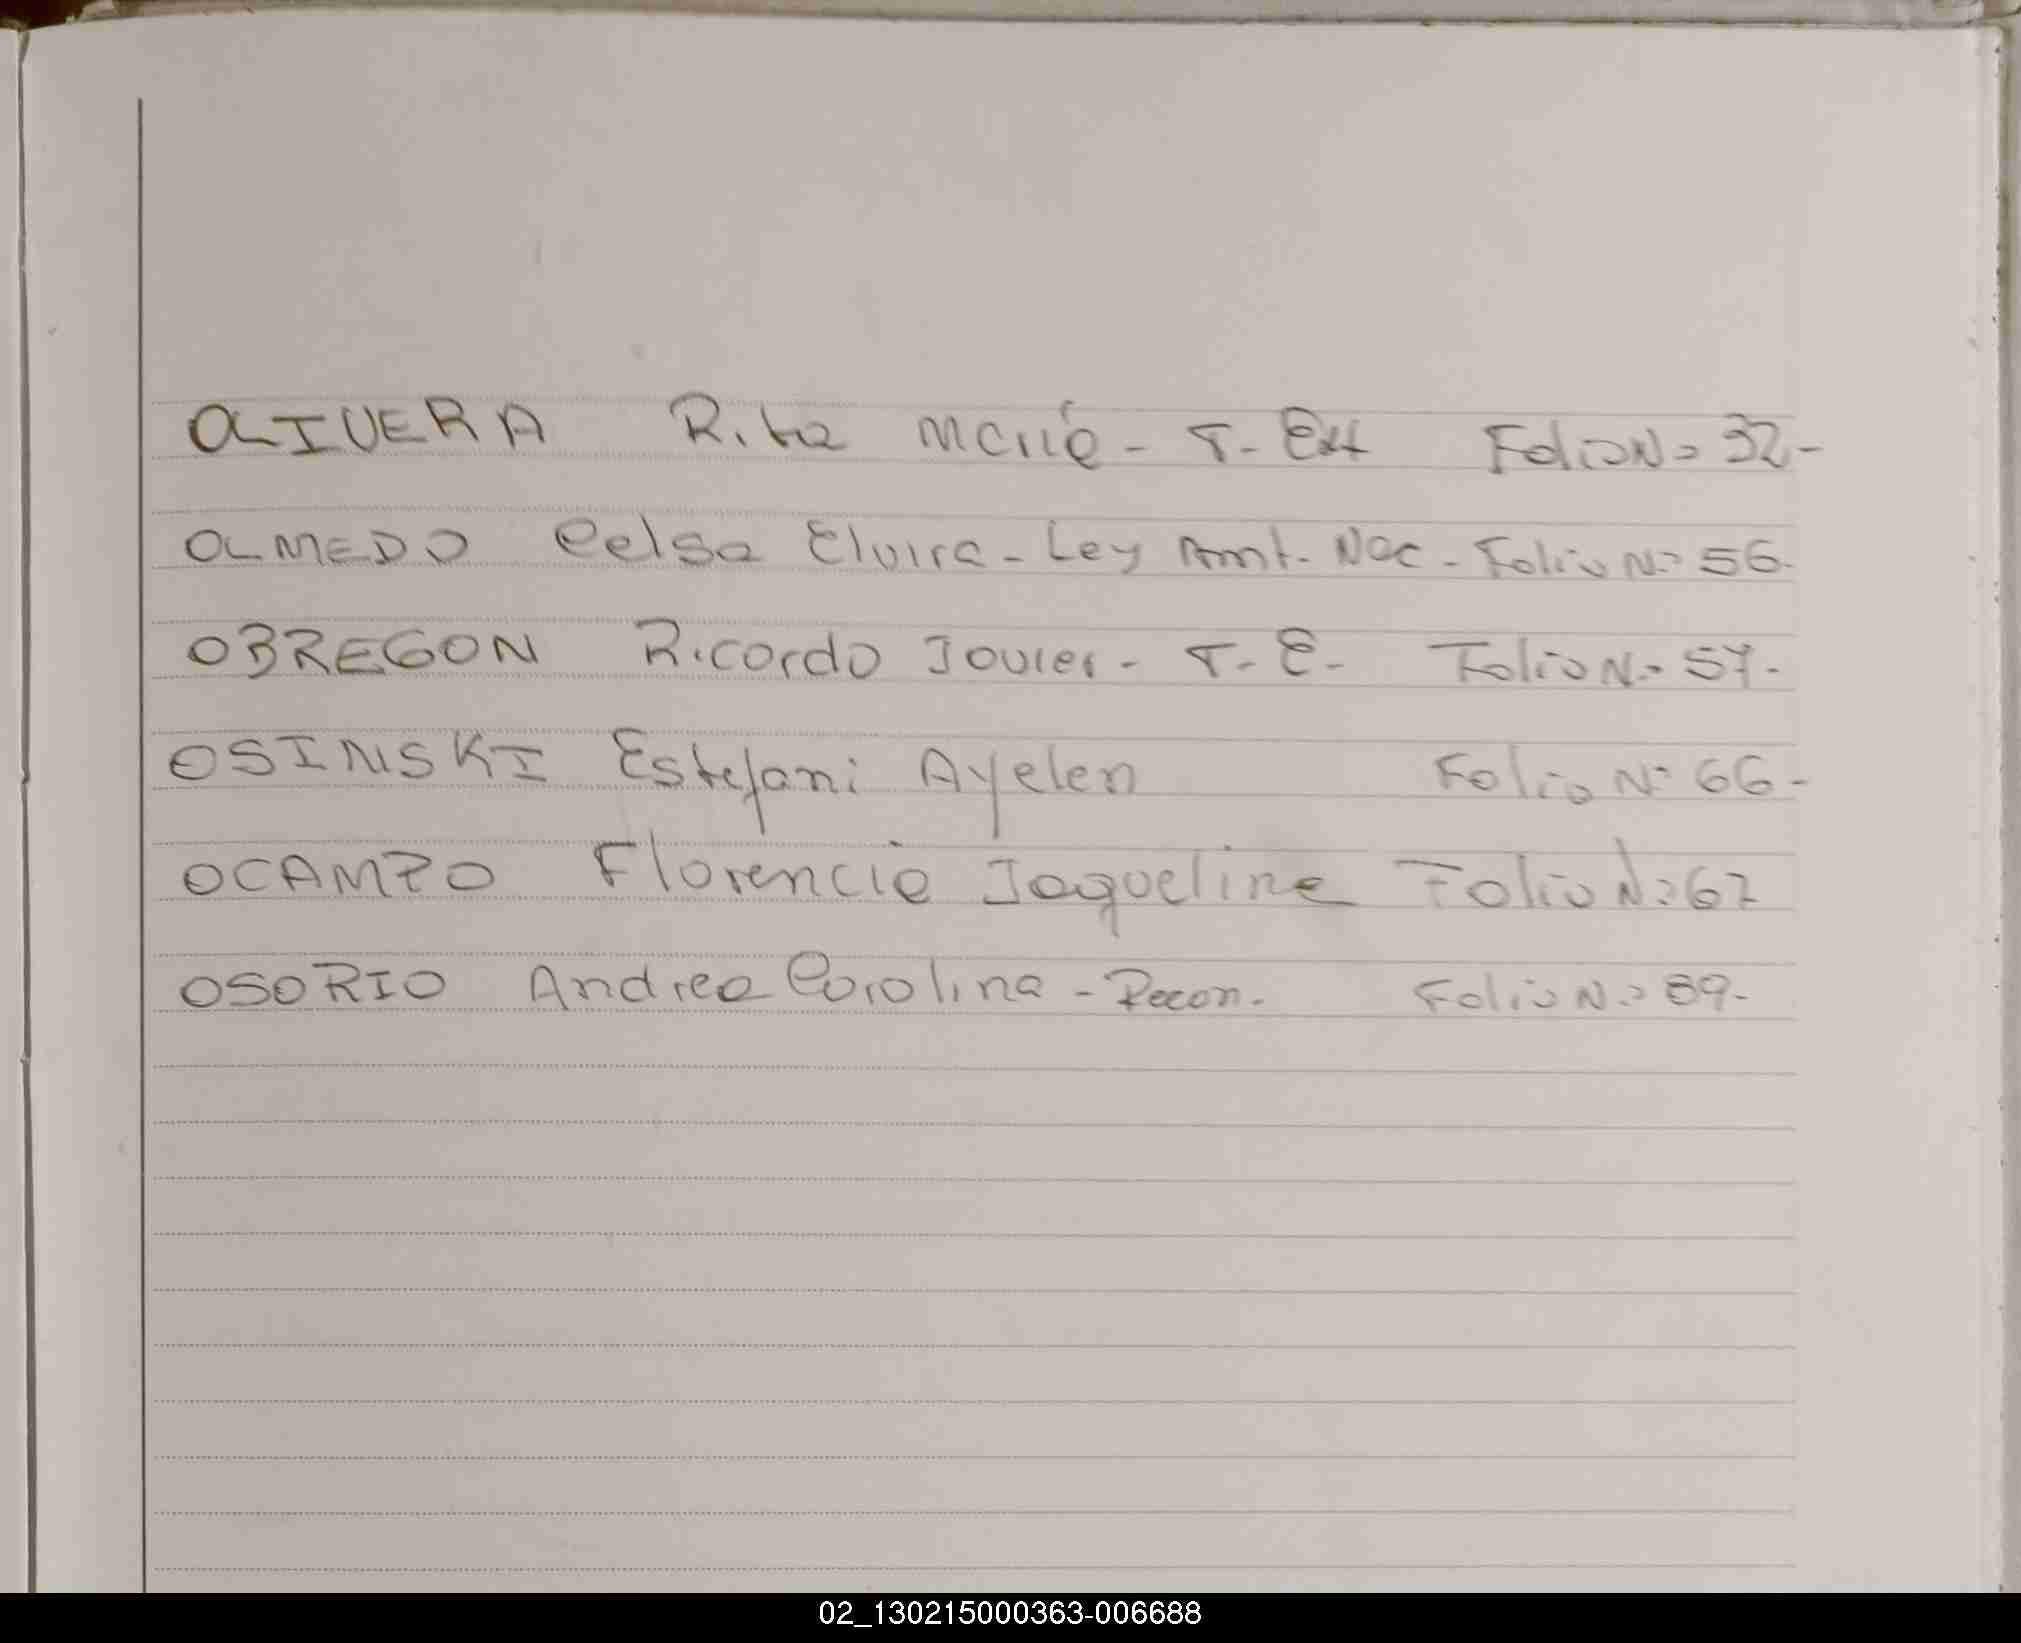 OLIVERA Rita María - T. Ext Folio Nº 32-
OLMEDO Celsa Elvira - Ley Amt. Nac - Folio Nº 56.
OBREGON Ricardo Javier - T. E. Folio Nº 57.
OSINSKI Estefani Ayelen Folio Nº 66-
OCAMPO Florencia Jaqueline Folio Nº 67
OSORIO Andrea Carolina - Recon. Folio Nº 89-
02_130215000363-006688